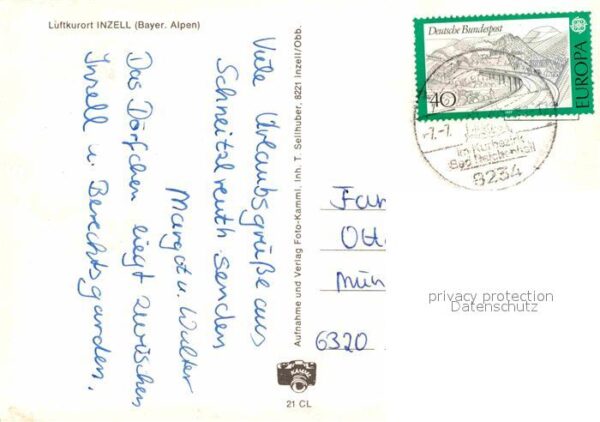 Luftkurort INZELL (Bayer. Alpen)
Viele Urlaubsgrüße aus
Schneitzlreuth senden
Margot u. Walter
Das Dörfchen liegt zwischen
Inzell u. Berechtsgarden.
Aufnahme und Verlag Foto-Kamml, Inh. T. Sellhuber, 8221 Inzell/Obb.
KAMML
21 CL
Deutsche Bundespost
40
EUROPA
-7.-7.
8234
Fam
Otto
Mün
6320
privacy protection
Datenschutz